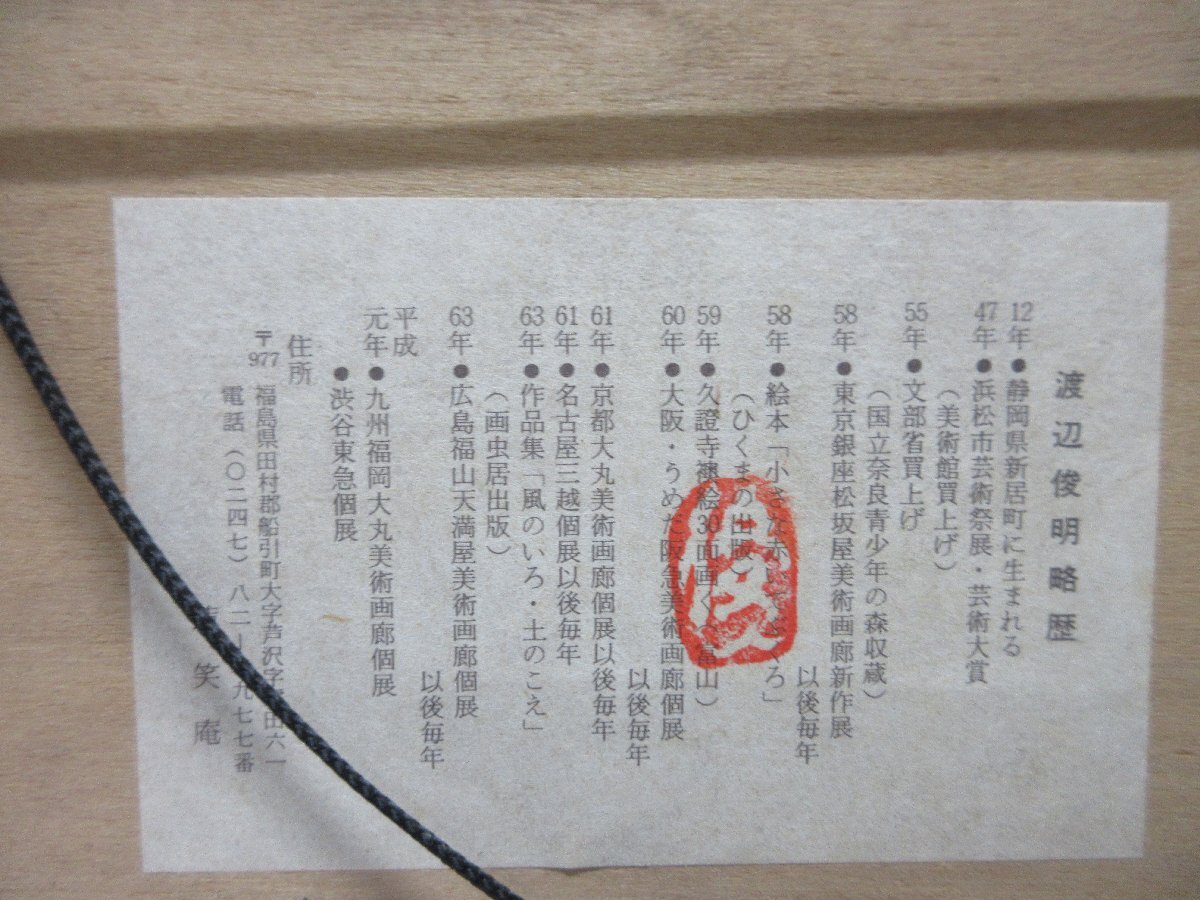 渡辺俊明略歴
12年●静岡県新居町に生まれる
47年●浜松市芸術祭展・芸術大賞
(美術館買上げ)
55年●文部省買上げ
(国立奈良青少年の森収蔵)
58年●東京銀座松坂屋美術画廊新作展
以後毎年
58年●絵本「小さな赤いてぶくろ」
(ひくまの出版)
59年●久證寺襖絵30面画く(富山)
60年●大阪・うめだ阪急美術画廊個展
以後毎年
61年●京都大丸美術画廊個展以後毎年
61年●名古屋三越個展以後毎年
63年●作品集「風のいろ・土のこえ」
(画虫居出版)
63年●広島福山天満屋美術画廊個展
以後毎年
平成
元年●九州福岡大丸美術画廊個展
●渋谷東急個展
住所
〒977 福島県田村郡船引町大字芦沢字 田六一
電話(〇二四七)八二ー 九七七番
笑庵